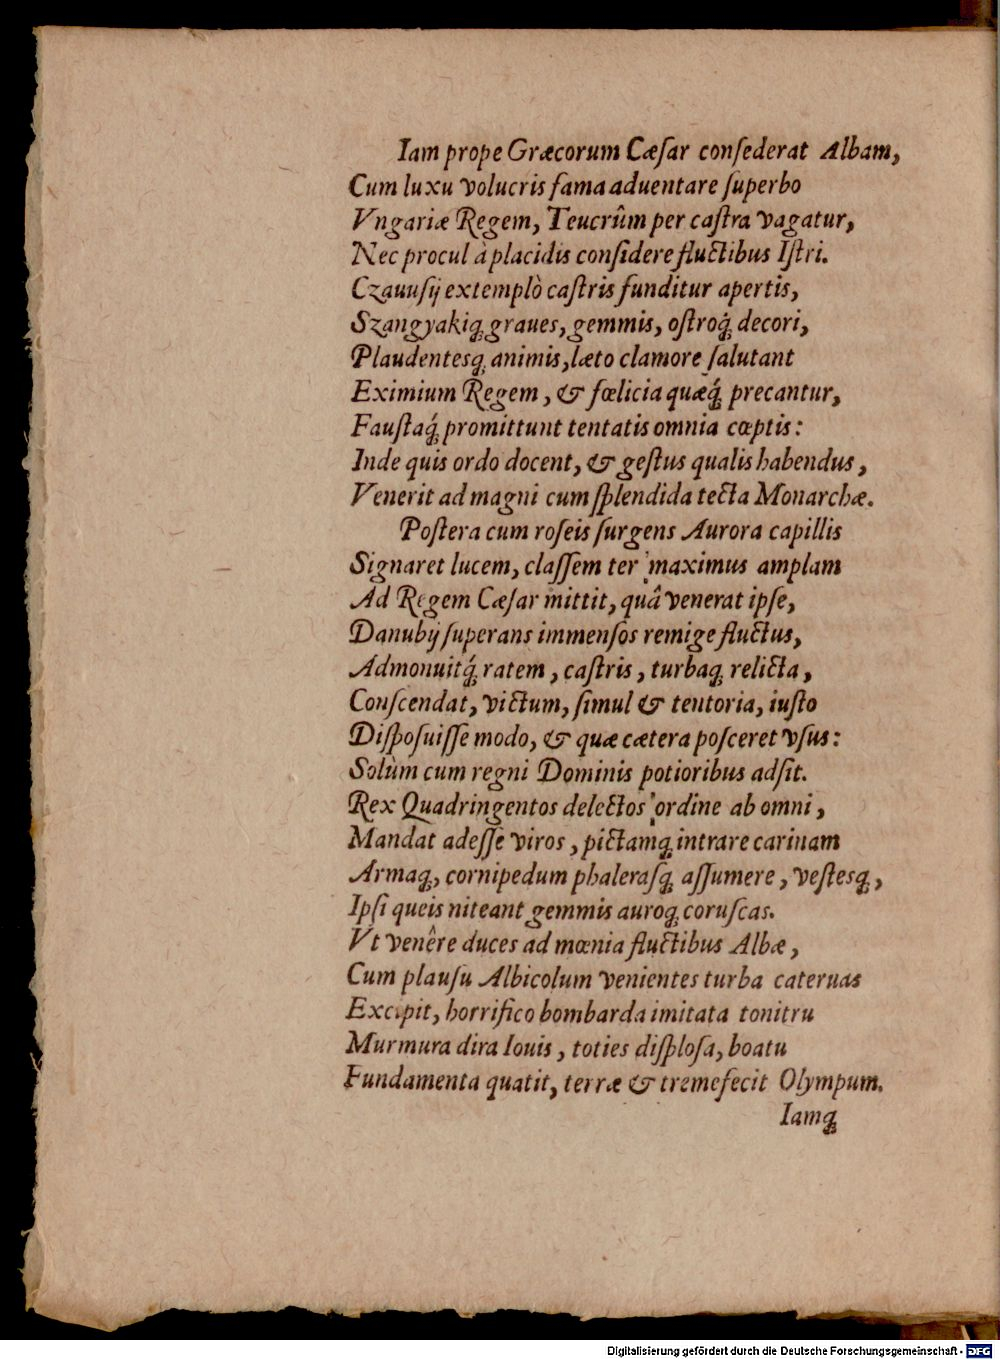 Iam prope Græcorum Cæſar conſederat Albam,
Cum luxu volucris fama aduentare ſuperbo
Vngariæ Regem, Teucrûm per caſtra vagatur,
Nec procul à placidis conſidere fluctibus Iſtri.
Czauuſij extemplò caſtris funditur apertis,
Szangyakiq́; graues, gemmis, oſtroq́; decori,
Plaudentesq; animis, læto clamore ſalutant
Eximium Regem, & fœlicia quæq́; precantur,
Fauſtaq́; promittunt tentatis omnia cœptis:
Inde quis ordo docent, & geſtus qualis habendus,
Venerit ad magni cum ſplendida tecta Monarchæ.
Poſtera cum roſeis ſurgens Aurora capillis
Signaret lucem, claſſem ter maximus amplam
Ad Regem Cæſar mittit, quâ venerat ipſe,
Danubij ſuperans immenſos remige fluctus,
Admonuitq́; ratem, caſtris, turbaq; relicta,
Conſcendat, victum, ſimul & tentoria, iuſto
Diſpoſuiſſe modo, & quæ cætera poſceret vſus:
Solùm cum regni Dominis potioribus adſit.
Rex Quadringentos delectos ordine ab omni,
Mandat adeſſe viros, pictamq; intrare carinam
Armaq;, cornipedum phaleraſq; aſſumere, veſtesq;,
Ipſi queis niteant gemmis auroq; coruſcas.
Vt venêre duces ad mœnia fluctibus Albæ,
Cum plauſu Albicolum venientes turba cateruas
Excipit, horrifico bombarda imitata tonitru
Murmura dira Iouis, toties diſploſa, boatu
Fundamenta quatit, terræ & tremefecit Olympum.
Iamq;
Digitalisierung gefördert durch die Deutsche Forschungsgemeinschaft - DFG